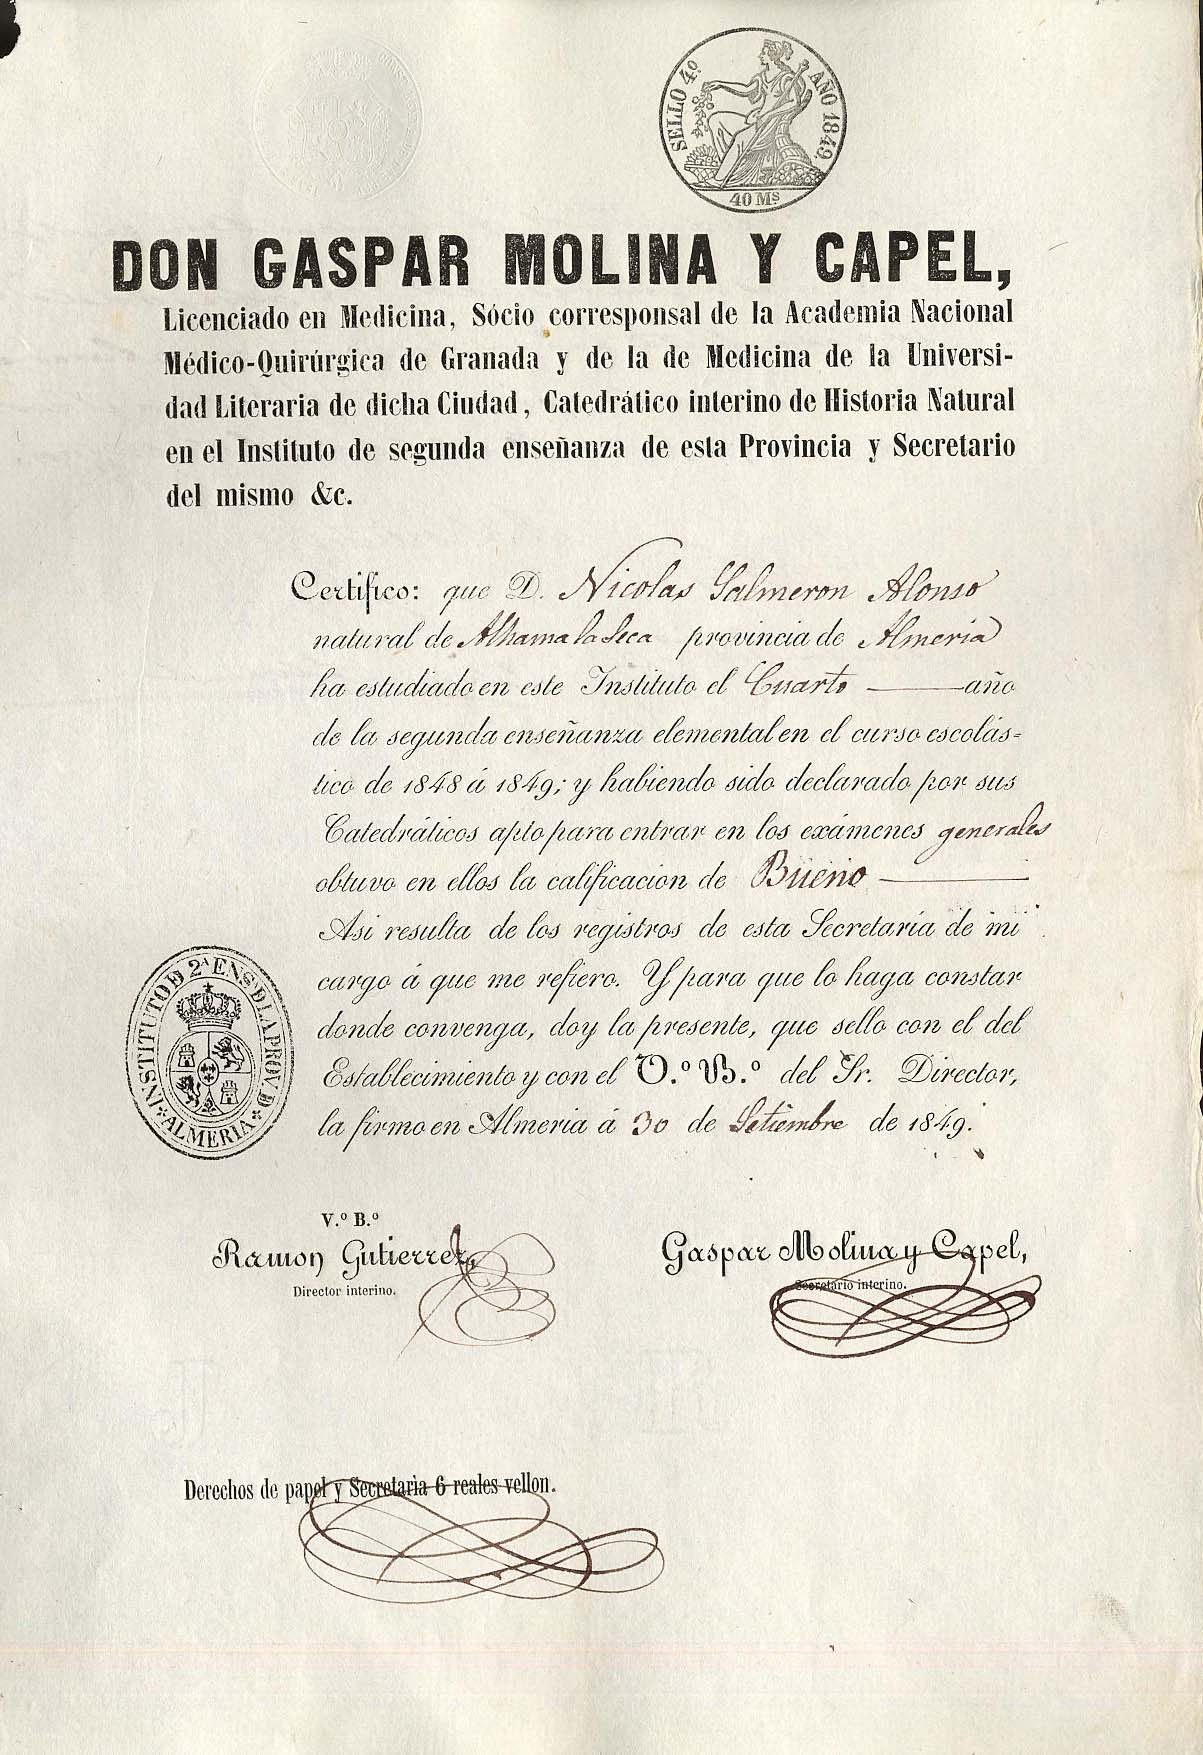 SELLO 4º AÑO 1849.
40 Mˢ
DON GASPAR MOLINA Y CAPEL,
Licenciado en Medicina, Sócio corresponsal de la Academia Nacional
Médico-Quirúrgica de Granada y de la de Medicina de la Universi-
dad Literaria de dicha Ciudad, Catedrático interino de Historia Natural
en el Instituto de segunda enseñanza de esta Provincia y Secretario
del mismo &c.
Certifico: que D. Nicolas Salmeron Alonso
natural de Alhama la Seca provincia de Almeria
ha estudiado en este Instituto el Cuarto año
de la segunda enseñanza elemental en el curso escolás=
tico de 1848 á 1849; y habiendo sido declarado por sus
Catedráticos apto para entrar en los exámenes generales
obtuvo en ellos la calificacion de Bueno
Asi resulta de los registros de esta Secretaría de mi
cargo á que me refiero. Y para que lo haga constar
donde convenga, doy la presente, que sello con el del
Establecimiento y con el V.º B.º del Sr. Director,
la firmo en Almeria á 30 de Setiembre de 1849.
INSTITUTO D 2ª ENS. D LA PROV. D ALMERIA
V.º B.º
Ramon Gutierrez,
Director interino.
Gaspar Molina y Capel,
Secretario interino.
Derechos de papel y Secretaria 6 reales vellon.